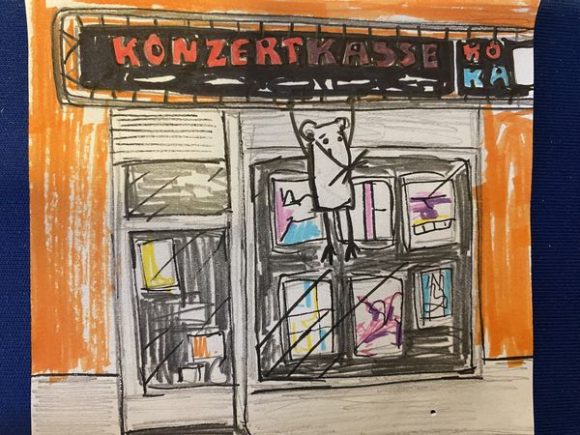 KONZERTKASSE
KO
KA